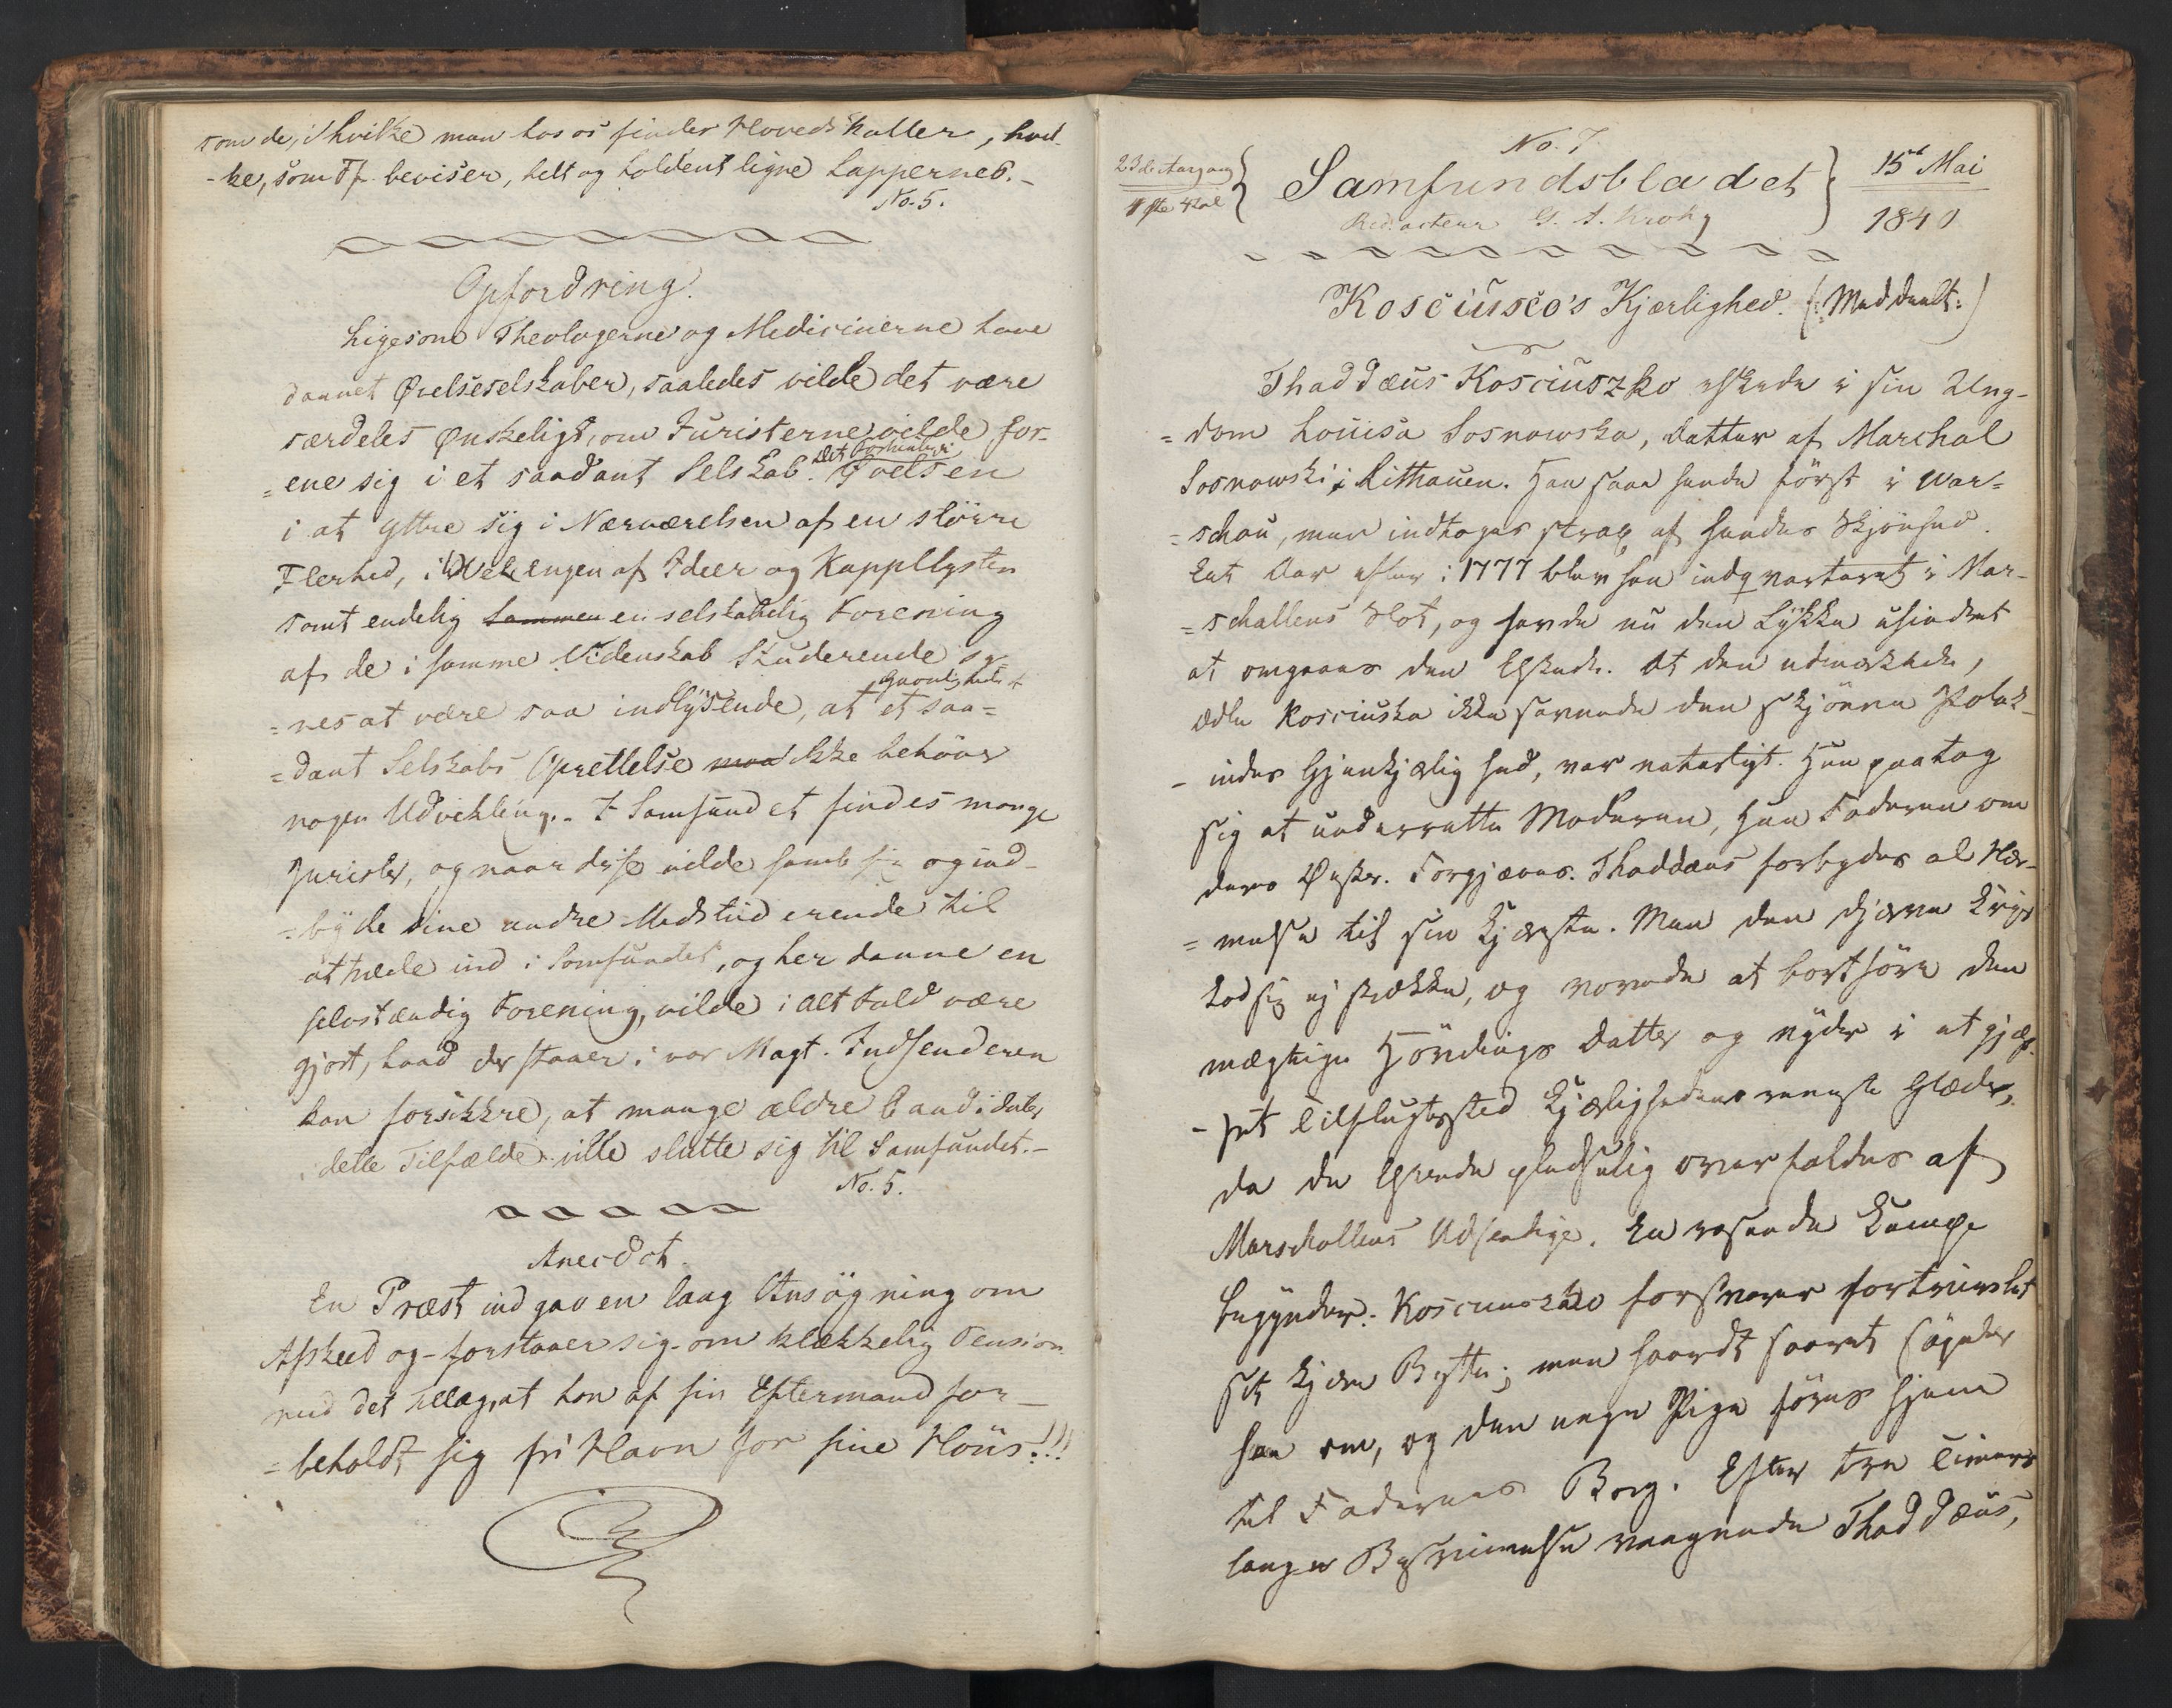 som de, i hvilke man hos os finder Hovedskaller, hvil-
-ke, som Ff. beviser, helt og holdent ligne Lappernes.-
No. 5.
Opfordring.
Ligesom Theologerne og Medicinerne have
dannet Øvelseselskaber, saaledes vilde det være
særdeles Ønskeligt, om Juristerne vilde for-
=ene sig i et saadant Selskab. Øvelsen
i at yttre sig i Nærværelsen af en större
Flerhed, i af Ideer og Kappllysten
samt endelig Sammen en selskabelig Forening
af de i samme Videnskab Studerende sy-
=nes at være saa indlysende, at et saa=
=dant Selskabs Oprettelse maa ikke behöver
nogen Udvikling.- I Samfundet findes mange
Jurister, og naar disse vilde samle sig og ind-
=byde sine andre Medstuderende til
at træde ind i Samfundet, og her danne en
selvstændig Forening, vilde i alt Fald være
gjort, hvad der staaer i vor Magt. Indsenderen
kan forsikkre, at mange ældre Candidater
i dette Tilfælde ville slutte sig til Samfundet.-
No. 5.
Anecdot.
En Præst indgav en lang Ansögning om
Afsked og - forstaaer sig - om klækkelig Pension
med det Tillæg, at han af sin Eftermand for-
=beholdt sig fri Havn for sine Höns!!!
No. 7.
23de Aargang
1ste Hal
Samfundsbladet
15d Mai
1840
Redacteur G. A. Krohg
Kosciusco's Kjærlighed. (: Meddeelt :)
Thaddæus Kosciuszko elskede i sin Ung-
=dom Louisa Sosnowska, Datter af Marchal
Sosnowski i Litthauen. Han saae hende först i War=
=schau, men indtoges strax af hendes Skjönhed.
Eet Aar efter i 1777 blev han indqvarteret i Mar-
=schallens Slot, og havde nu den Lykke uhindret
at omgaaes den Elskede. At den udmærkede,
ædle Kosciusko ikke savnede den skjönne Polak-
-indes Gjenkjærlighed, var naturligt. Hun paatog
sig at underrette Moderen, Han Faderen om
deres Ønsker. Forgjæves. Thaddæus forbydes al Nær-
=melse til sin Kjæreste. Men den djærve Krigs
lod sig ej skrække, og vovede at bortföre den
mægtige Hövdings Datter og nyder i et gjæs-
-frit Tilflugtssted Kjærlighedens reneste Glæder,
da de Elskende pludselig overfaldes af
Marschallens Udsendige. En rasende Kamp
begynder. Kosciuszko forsvarer fortvivlet
sit kjære Bytte; men haardt saaret segner
han om, og den unge Pige föres hjem
til Faderens Borg. Efter tre Timers
lange Besvimelse vaagnede Thaddæus,